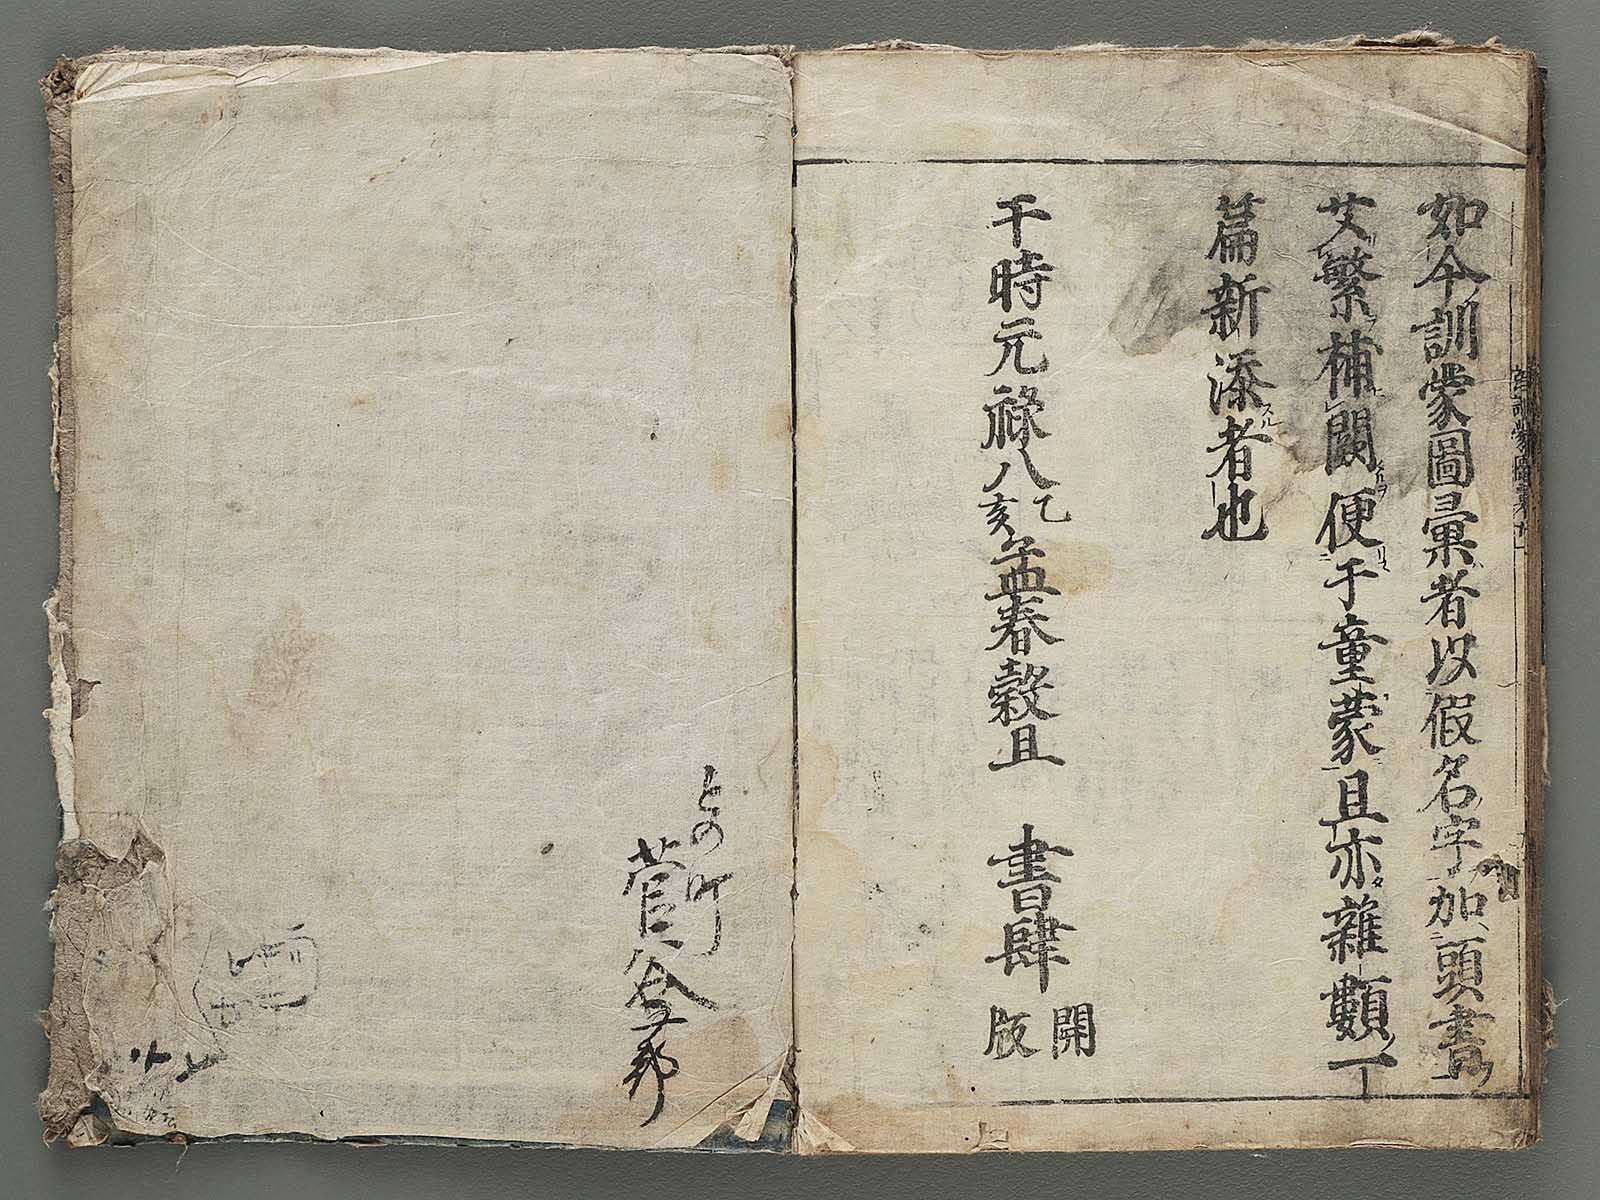 如今訓蒙圖彙者以假名字加頭書
艾繁補闕便于童蒙且亦雜類一
篇新添者也
于時元祿八乙亥孟春穀旦 書肆 開版
との町